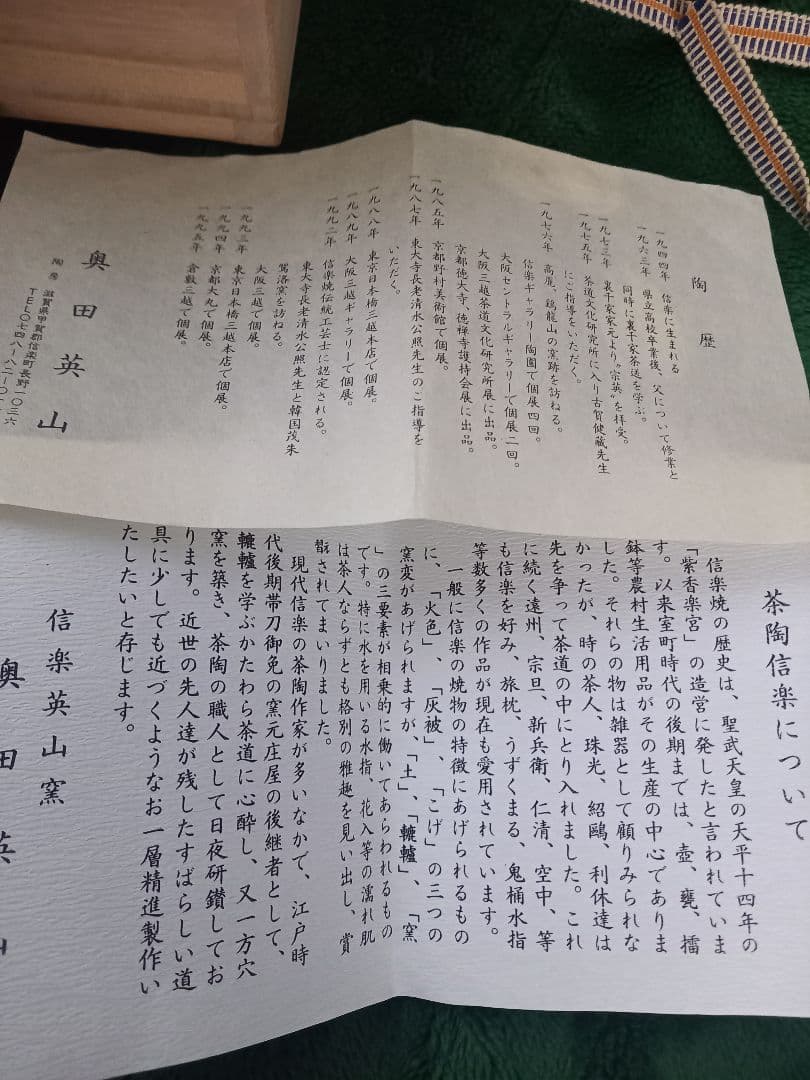 陶歴
一九四四年 信楽に生まれる
一九六三年 県立高校卒業後、父について修業と
同時に裏千家茶道を学ぶ。
一九七三年 裏千家家元より〝宗英〟を拝受。
一九七五年 茶道文化研究所に入り古賀健蔵先生
にご指導をいただく。
一九七六年 高麗、鶏龍山の窯跡を訪ねる。
信楽ギャラリー陶園で個展四回。
大阪セントラルギャラリーで個展二回。
大阪三越茶道文化研究所展に出品。
京都徳大寺、徳禅寺護持会展に出品。
一九八五年 京都野村美術館で個展。
一九八七年 東大寺長老清水公照先生のご指導を
いただく。
一九八八年 東京日本橋三越本店で個展。
一九八九年 大阪三越ギャラリーで個展。
一九九二年 信楽焼伝統工芸士に認定される。
東大寺長老清水公照先生と韓国茂朱
篤洛窯を訪ねる。
大阪三越で個展。
一九九三年 東京日本橋三越本店で個展。
一九九四年 京都大丸で個展。
一九九五年 倉敷三越で個展。
奥田英山
陶房 滋賀県甲賀郡信楽町長野一〇三六
TEL〇七四八-八二-〇
茶陶信楽について
信楽焼の歴史は、聖武天皇の天平十四年の
「紫香楽宮」の造営に発したと言われていま
す。以来室町時代の後期までは、壺、甕、擂
鉢等農村生活用品がその生産の中心でありま
した。それらの物は雑器として顧りみられな
かったが、時の茶人、珠光、紹鷗、利休達は
先を争って茶道の中にとり入れました。これ
に続く遠州、宗旦、新兵衛、仁清、空中、等
も信楽を好み、旅枕、うずくまる、鬼桶水指
等数多くの作品が現在も愛用されています。
一般に信楽の焼物の特徴にあげられるもの
に、「火色」、「灰被」、「こげ」の三つの
窯変があげられますが、「土」、「轆轤」、「窯
」の三要素が相乗的に働いてあらわれるもの
です。特に水を用いる水指、花入等の濡れ肌
は茶人ならずとも格別の雅趣を見い出し、賞
翫されてまいりました。
現代信楽の茶陶作家が多いなかで、江戸時
代後期帯刀御免の窯元庄屋の後継者として、
轆轤を学ぶかたわら茶道に心酔し、又一方穴
窯を築き、茶陶の職人として日夜研鑽してお
ります。近世の先人達が残したすばらしい道
具に少しでも近づくようなお一層精進製作い
たしたいと存じます。
信楽英山窯
奥田英山